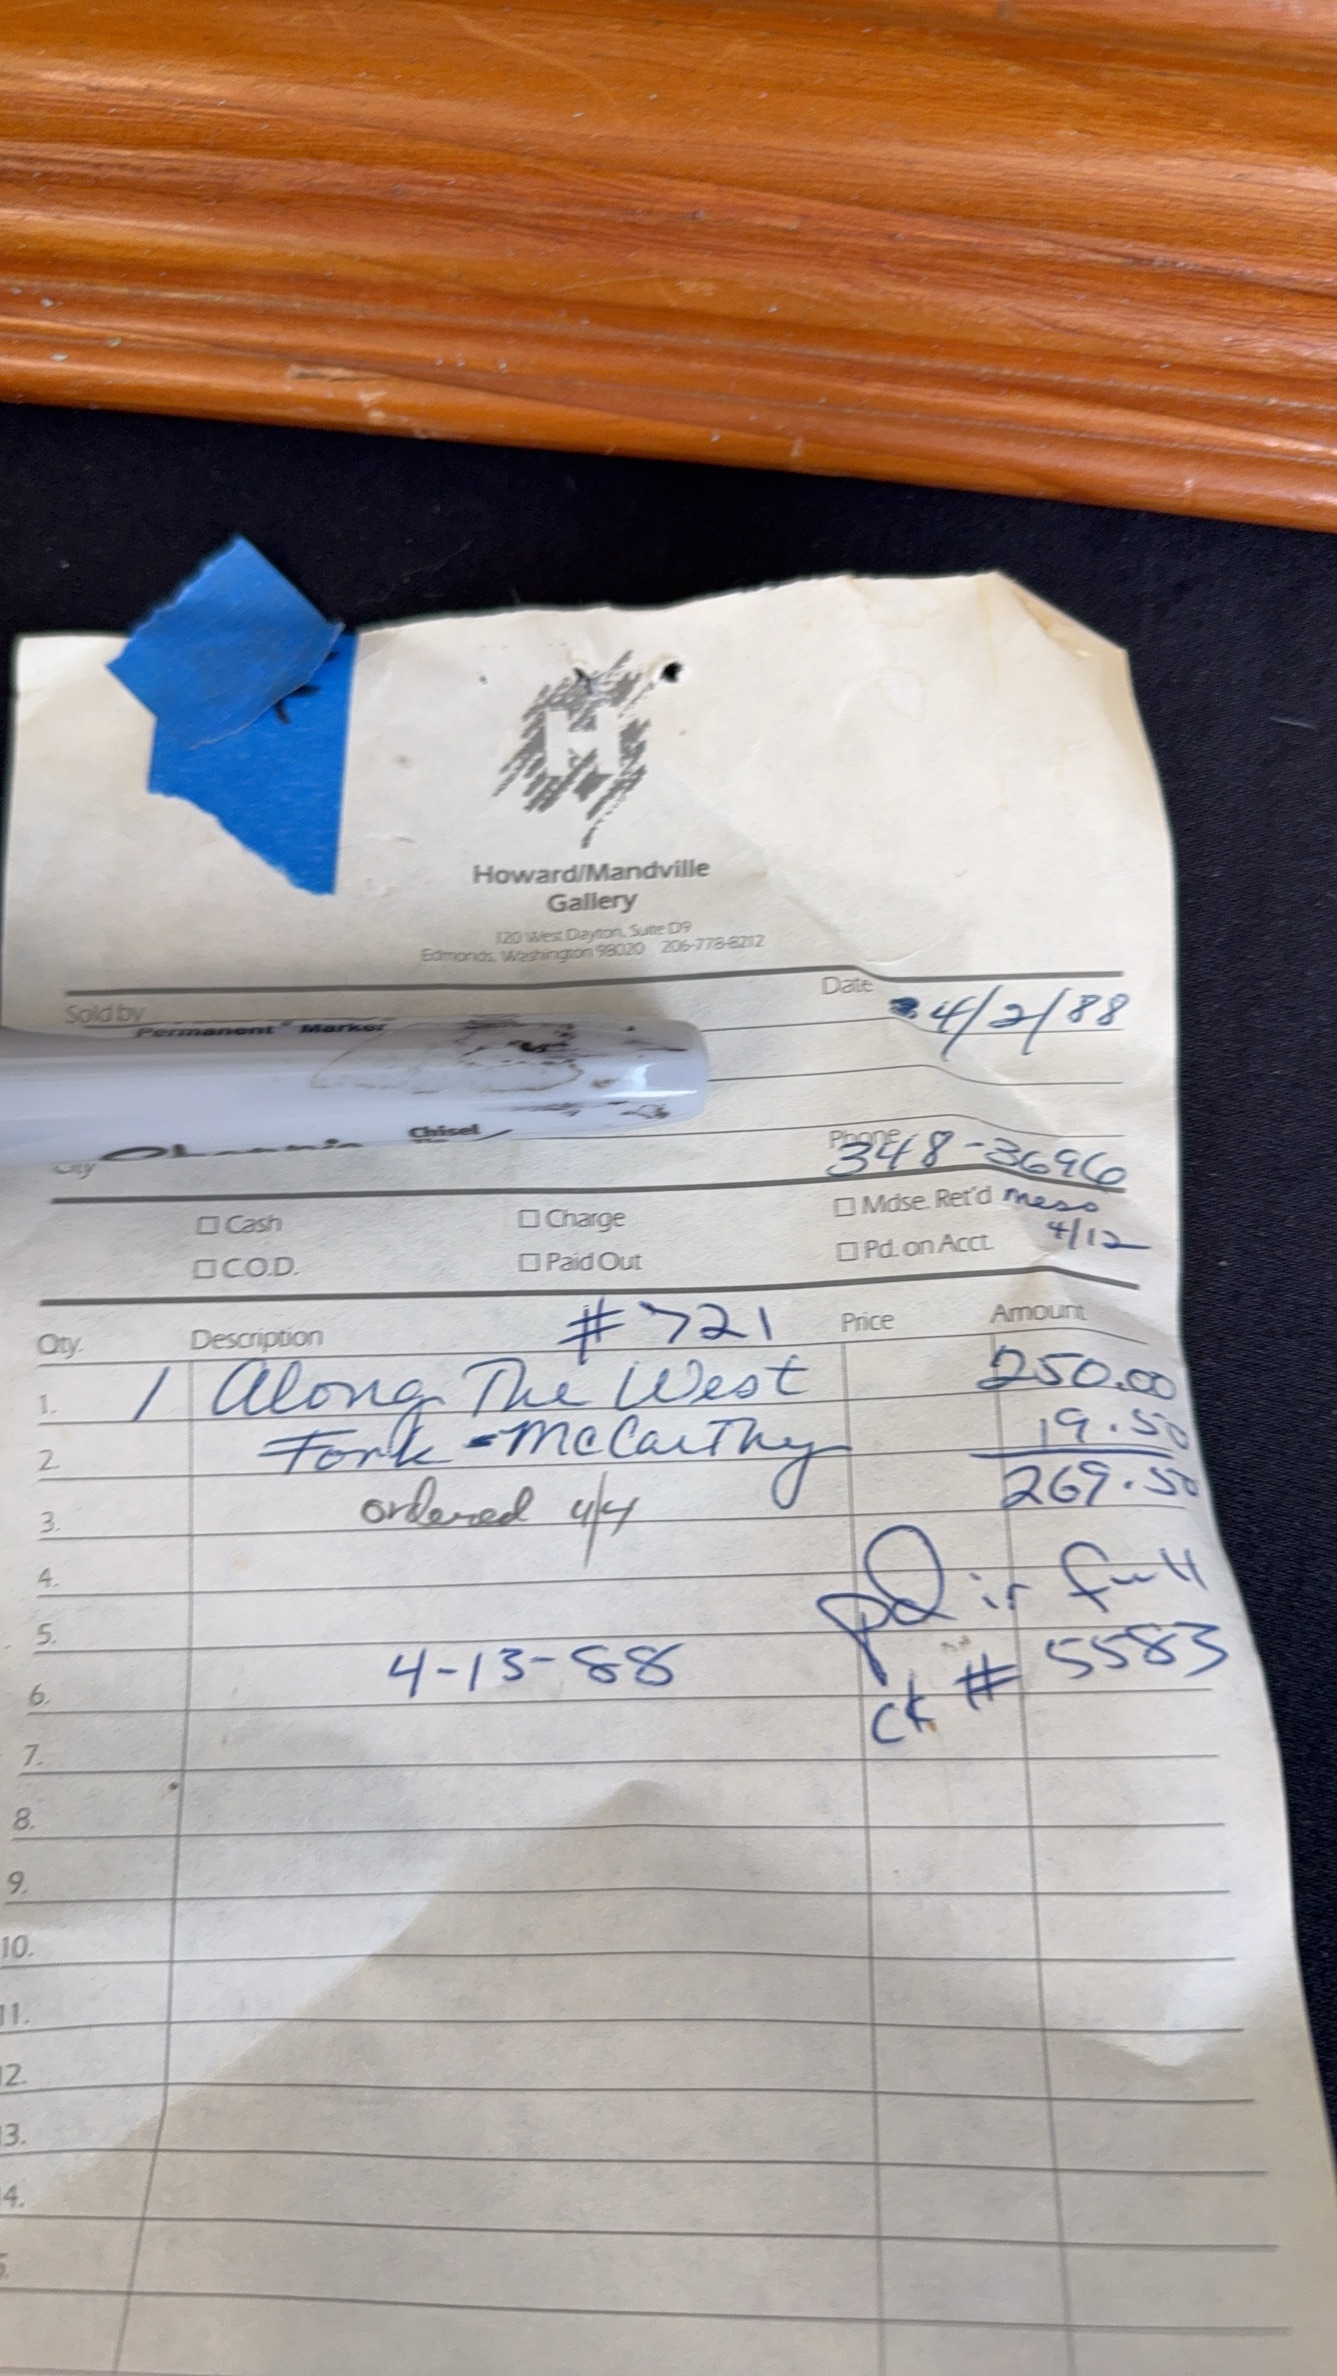 Howard/Mandville
Gallery
120 West Dayton, Suite D9
Edmonds, Washington 98020 206-778-8212
Sold by
Date 4/2/88
Permanent Marker
Chisel
City
Phone
348-3696
☐ Cash ☐ Charge ☐ Mdse. Ret'd mess
4/12
☐ C.O.D. ☐ Paid Out ☐ Pd. on Acct.
Qty. Description #721 Price Amount
1. 1 Along The West 250.00
2. Fork - McCarthy 19.50
269.50
3. ordered 4/4
4. pd in full
5.
4-13-88 ck # 5583
6.
7.
8.
9.
10.
11.
12.
13.
14.